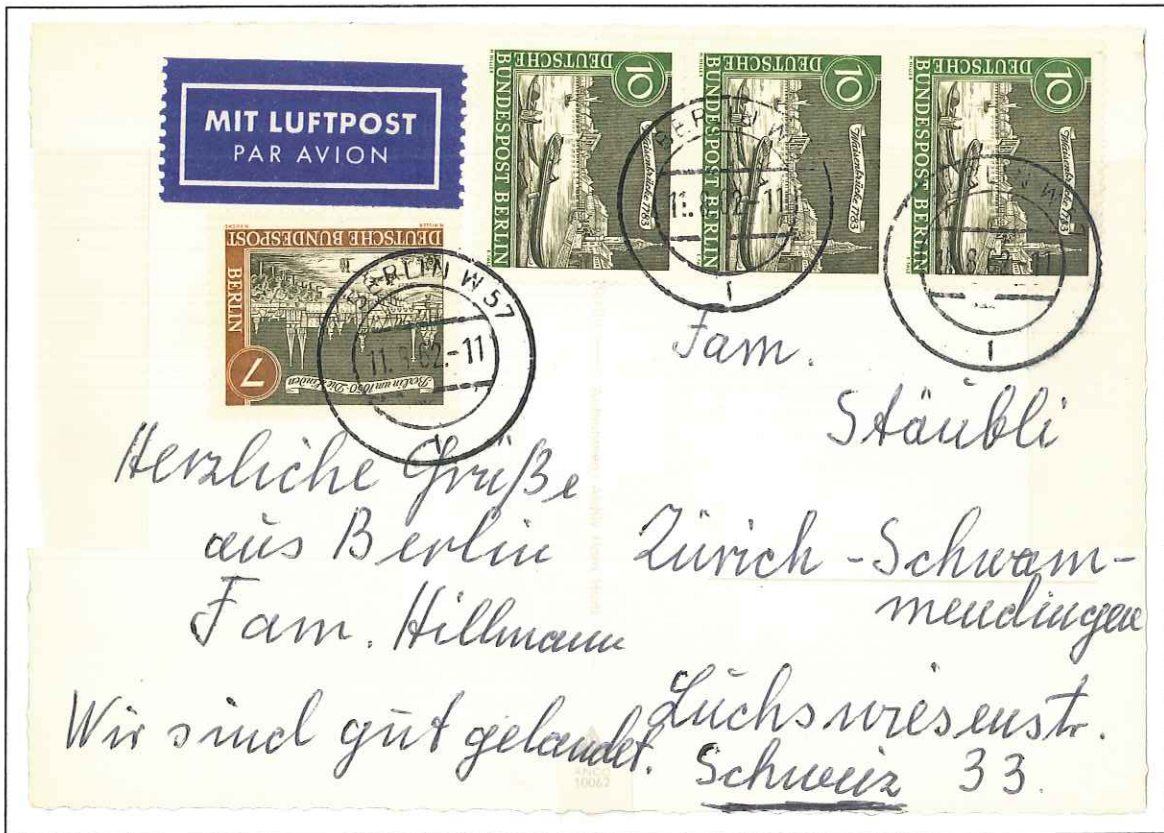 MIT LUFTPOST
PAR AVION
10
DEUTSCHE
BUNDESPOST BERLIN
Waisenbrücke 1783
10
DEUTSCHE
BUNDESPOST BERLIN
Waisenbrücke 1783
10
DEUTSCHE
BUNDESPOST BERLIN
Waisenbrücke 1783
BERLIN W
11.8.62.-11
DEUTSCHE BUNDESPOST
BERLIN
7
Berlin um 1650 · Die Linden
BERLIN W 57
11.8.62.-11
Herzliche Grüße
aus Berlin
Fam. Hillmann
Wir sind gut gelandet.
Fam.
Stäubli
Zürich-Schwam-
mendingen
Luchswiesenstr.
Schweiz 33.
ANCO
10062